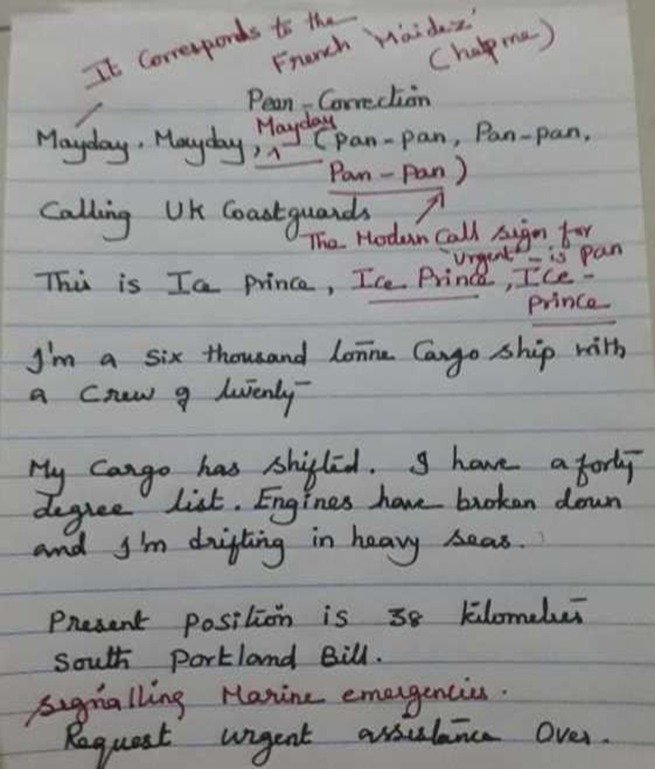 It corresponds to the
French 'Maidez'
(help me)
Pean-Correction
Mayday
Mayday, Mayday, ^ (pan-pan, Pan-pan,
Pan-pan)
Calling UK Coastguards
The Modern Call sign for
'Urgent' - is pan
This is Ice prince, Ice Prince, Ice-
Prince
I'm a six thousand tonne Cargo ship with
a Crew of twenty
My Cargo has shifted. I have a forty
degree list. Engines have broken down
and I'm drifting in heavy seas.
Present position is 38 kilometres
South Portland Bill.
signalling Marine emergencies.
Request urgent assistance Over.